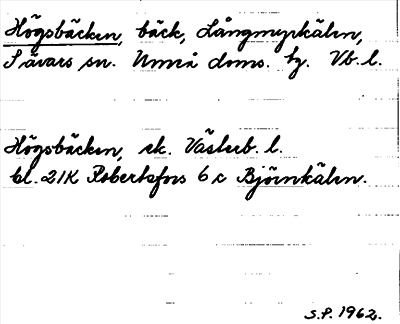 Högsbäcken, bäck, Långmyrkälen,
Sävars sn. Umeå doms. hg. Vb. l.
Högsbäcken, ek. Västerb. l.
bl. 21K Robertsfors 6 c Björnkälen.
S.P. 1962.